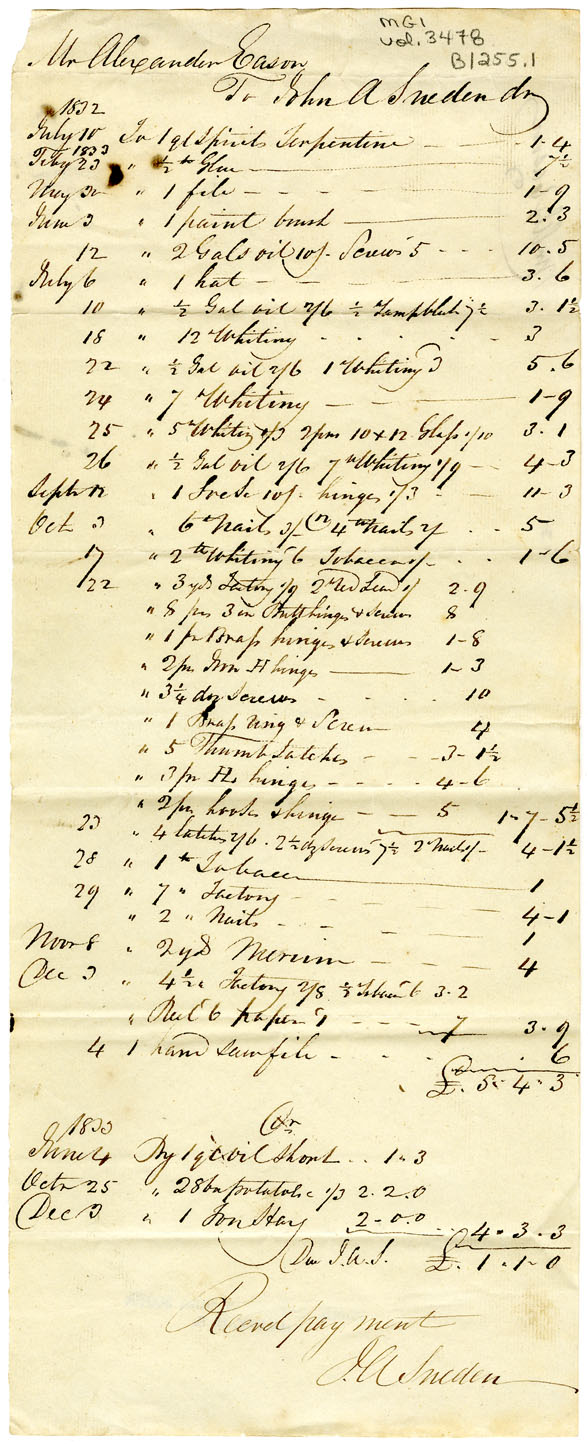 MG1
vol. 3478
B1255.1
Mr Alexander Eason
To John A Sneden dr
1832
July 10 To 1 qt Spirits Terpentine 1-4
1833
Feby 23 " ½ lb Glue 7½
May 30 " 1 file 1-9
June 3 " 1 paint brush 2.3
12 " 2 Gals oil 10/- Screws 5 10.5
July 6 " 1 hat 3.6
10 " ½ Gal oil 2/6 ½ Lampblack 7½ 3.1½
18 " 12 Whiting 3
22 " ½ Gal oil 2/6 1 Whiting 3 5.6
24 " 7 Whiting 1-9
25 " 5 Whiting 1/3 2 pns 10 x 12 Glass 1/10 3.1
26 " ½ Gal oil 2/6 7 lb Whiting 1/9 4-3
Septr 12 " 1 10/- hinges 1/3 11-3
Oct 3 " 6 lb Nails 3/- 4 lb Nails 2/ 5
17 " 2 lb Whiting 6 Tobacco 1/- 1-6
22 " 3 yds Factory 1/9 2 lb Red Lead 1/ 2.9
" 8 prs 3 in Butt hinges & Screws 8
" 1 pr Brass hinges & Screws 1-8
" 2 prs Iron H hinges 1-3
" 3¼ doz Screws 10
" 1 Brass ring & Screw 4
" 5 Thumb Latches 3-1½
" 3 pr H hinges 4-6
" 2 pr hooks & hinge 5 1-7-5½
23 " 4 latches 2/6. 2½ dz Screws 7½ 2 Nails 1/- 4-1½
28 " 1 lb Tobacco 1
29 " 7 " Factory 4-1
" 2 " Nails 1
Novr 8 " 2 yds 4
Dec 3 " 4½ " Factory 2/8 ½ Tobacco 6 3.2
" Reel 6 paper 1 7 3.9
4 1 hand saw file 6
£. 5-4-3
Cr
1833
June 4 By 1 qt oil Short 1.3
Octr 25 " 28 bu potatoes 1/3 2.2.0
Dec 3 " 1 Ton Hay 2-0.0 4.3.3
Due J.A.S. £. 1.1-0
Recvd payment
J.A Sneden